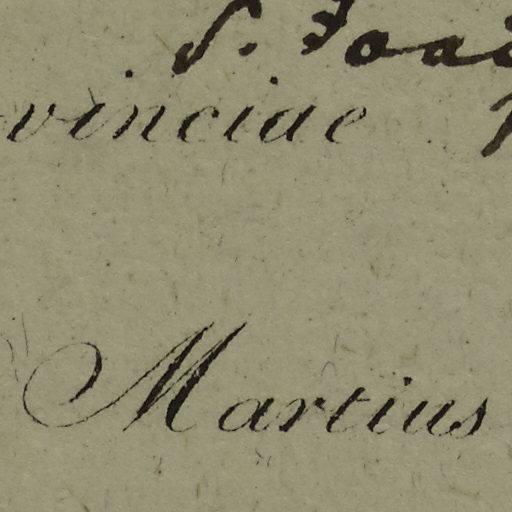 S. Joao
vinciae
Martius